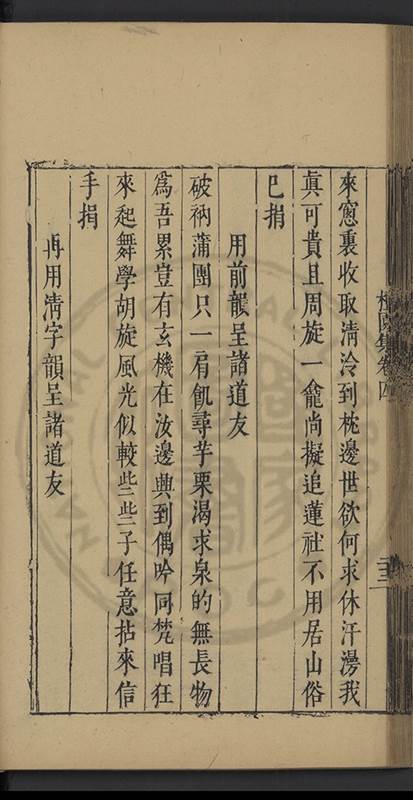 來窻裏收取清泠到枕邊世欲何求休汗漫我
真可貴且周旋一龕尚擬追蓮社不用居山俗
已捐
用前韻呈諸道友
破衲蒲團只一肩飢尋芋栗渴求泉的無長物
爲吾累豈有玄機在汝邊興到偶吟同梵唱狂
來起舞學胡旋風光似較些些子任意拈來信
手捐
再用清字韻呈諸道友
集卷四